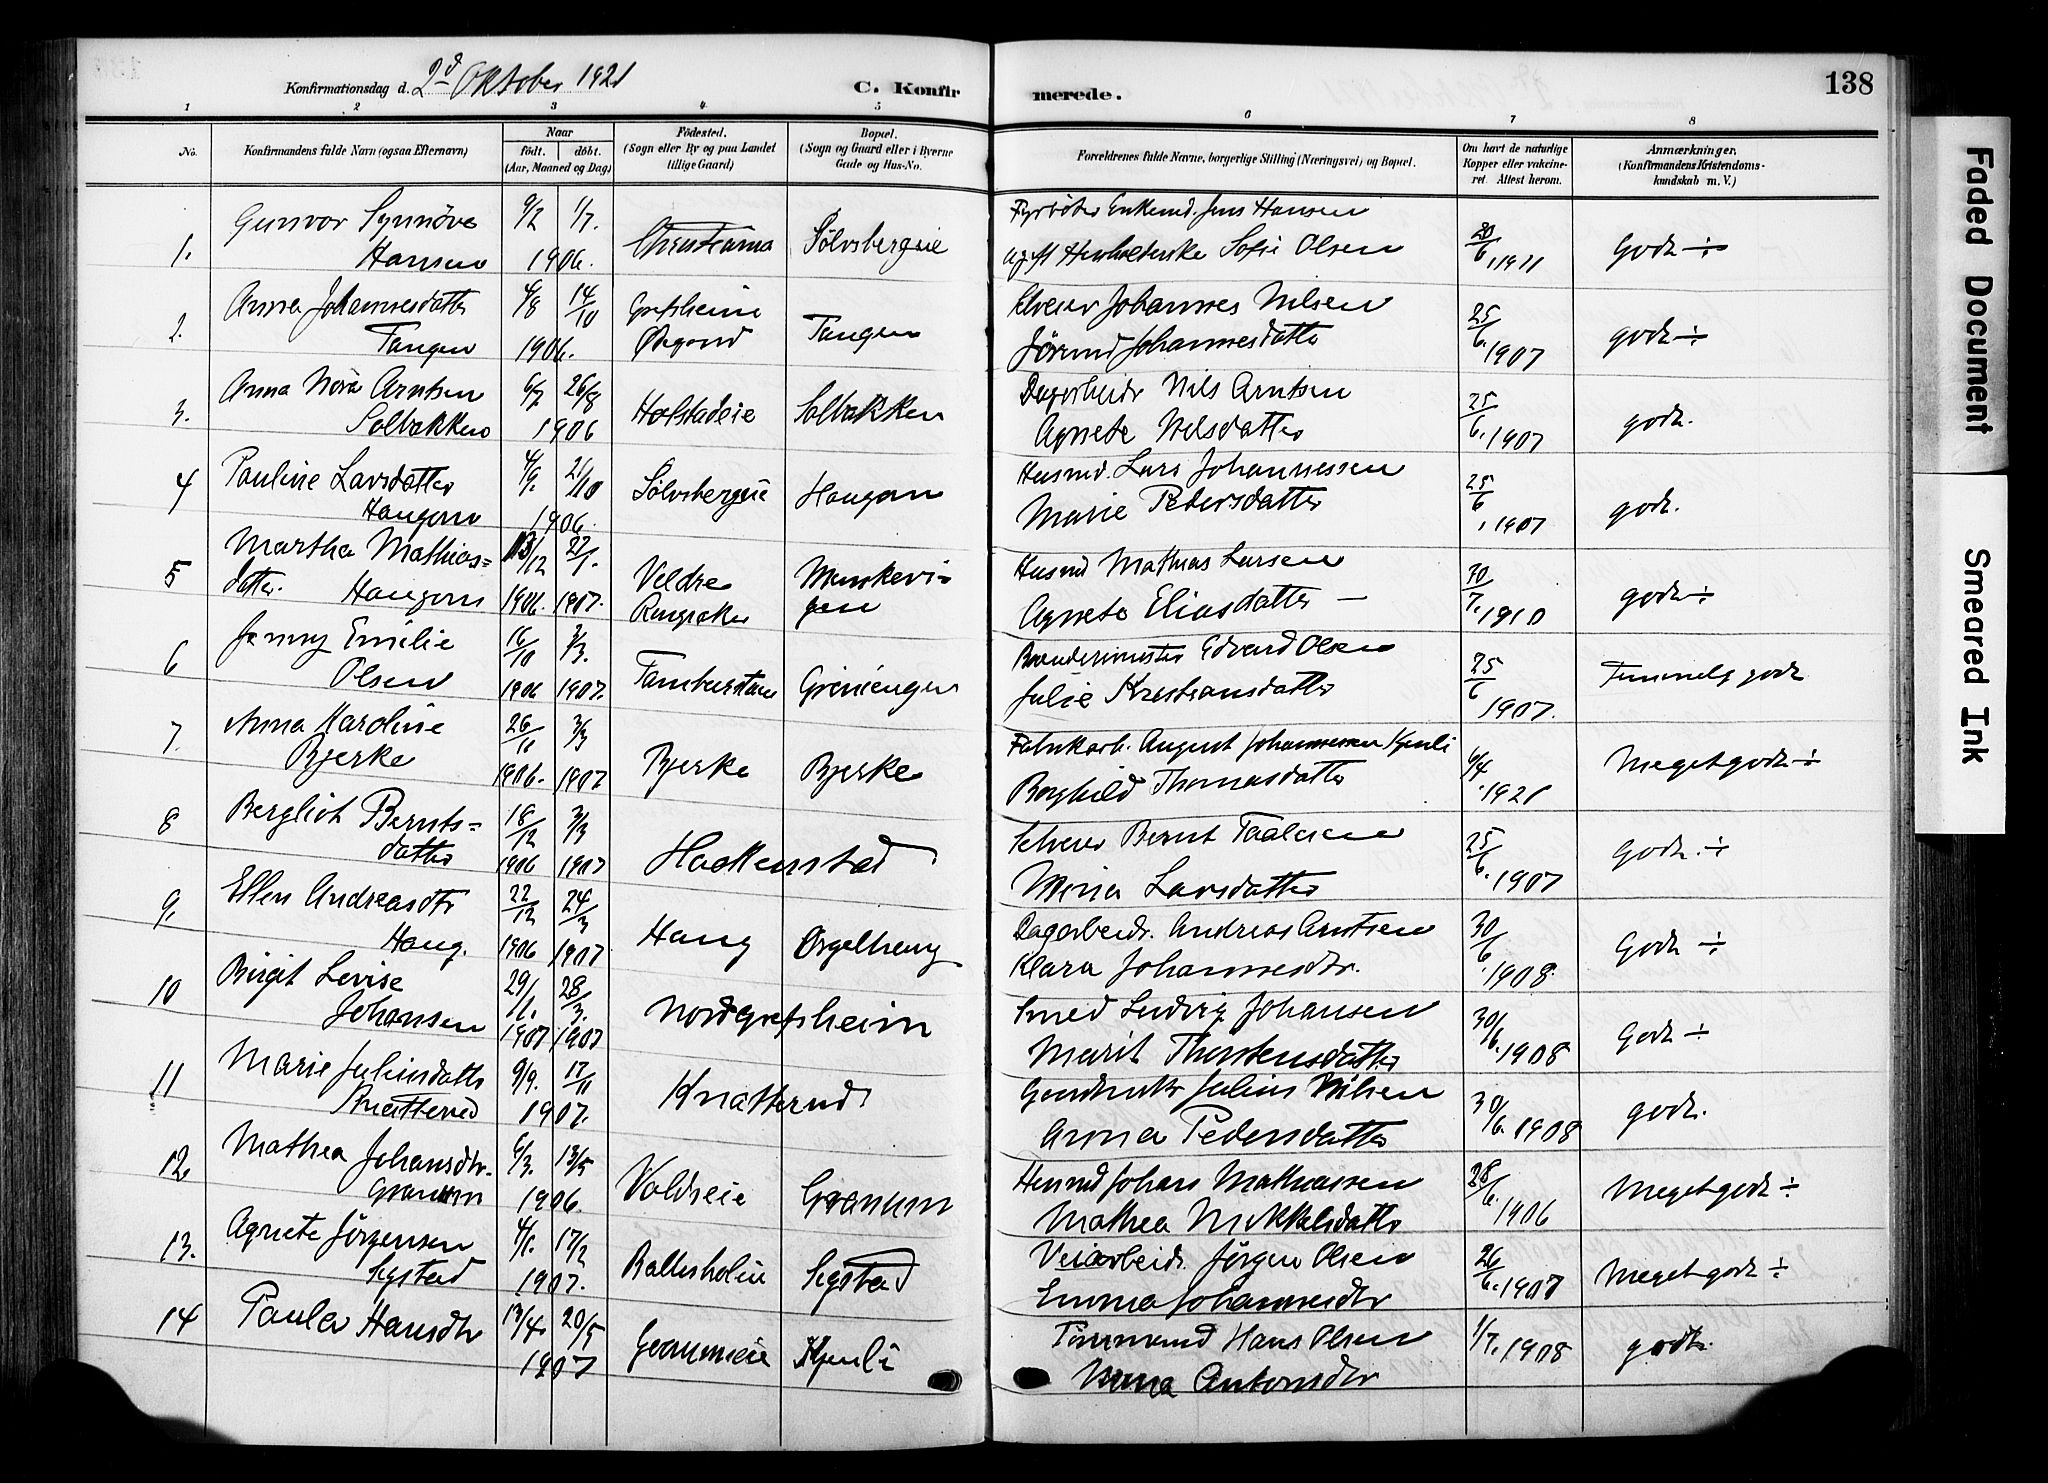 138
Konfirmationsdag d. 2d Oktober 1921
C. Konfirmerede.
1 2 3 4 5 6 7 8
No.
Konfirmandens fulde Navn (ogsaa Efternavn)
Naar
født. døbt.
(Aar, Maaned og Dag)
Fødested.
(Sogn eller By og paa Landet
tillige Gaard)
Bopæl.
(Sogn og Gaard eller i Byerne
Gade og Hus-No.
Forældrenes fulde Navne, borgerlige Stilling (Næringsvei) og Bopæl.
Om havt de naturlige
Kopper eller vakcine-
ret Attest herom.
Anmærkninger,
(Konfirmandens Kristendoms-
kundskab m. V.)
1. Gunvor Synnöve Hansen 9/2 1/7. 1906. Christiania Sølvsbergeie
Fyrbøter Enkemd. Jens Hansen
Sofie Olsen 20/6. 1911 godt ÷
2. Anna Johannesdatter Tangen 4/8 14/10 1906. Grefsheim Ødegaard Tangen
Selveier Johannes Nilsen
Jørund Johannesdatter 25/6. 1907 godt ÷
3. Anna Nora Arntsen Solbakken 6/7 26/8 1906 Hofstadeie Solbakken
Dagarbeidr Nils Arntsen
Agnete Nilsdatter 25/6. 1907 godt.
4 Pauline Larsdatter Haugom 4/9. 21/10 1906. Sølvsbergeie Haugom
Husmd. Lars Johannessen
Marie Pedersdatter 25/6. 1907 godt.
5 Martha Mathiasdatter. Haugom 13/12 1906. 27/1. 1907. Veldre Ringsaker Menkevigen
Husmd Mathias Larsen
Agnete Eliasdatter — 30/7. 1910 godt ÷
6 Jenny Emilie Olsen 16/10 1906 3/3. 1907. Tamburstuen Grenengen
Edvard Olsen
Julie Kristiansdatter 25/6 1907. Temmelig godt
7. Anna Karoline Bjerke 26/11 1906. 3/3 1907 Bjerke Bjerke
Fabrikarb. August Johannessen Kjenli
Borghild Thomasdatter 6/4. 1921 Meget godt ÷
8 Bergliot Berntsdatter 18/12 1906 3/3 1907 Hackenstad
Selveier Bernt Paalsen
Mina Larsdatter 25/6. 1907 godt. ÷
9. Ellen Andreasdtr Haug. 22/12 1906 24/3 1907 Haug Orgelhaug
Dagarbeidr. Andreas Arntsen
Klara Johannesdtr. 30/6. 1908. Godt ÷
10 Birgit Lovise Johansen 29/1. 1907 28/3. 1907 Nordgrefsheim
Smed Ludvig Johansen
Marit Thorstensdatter 30/6. 1908 godt ÷
11 Marie Juliusdatter Knatterud 9/9. 17/11 1907. Knatterud
Gaardbruker Julius Nilsen
Anna Pedersdatter 30/6. 1908 godt.
12. Mathea Johansdtr. Granum 6/3. 13/5 1906. Voldseie Granum
Husmd Johans Mathiassen
Mathea Mikkelsdatter 28/6. 1906 Meget godt ÷
13. Agnete Jørgensen Segstad 4/1. 17/2 1907. Ballesholeie Segstad
Veiarbeidr. Jørgen Olsen
Emma Johannesdtr 26/6. 1907 Meget godt ÷
14 Paula Hansdtr 13/4. 20/5 1907 Granumeie Kjenli
Tømmermd Hans Olsen
Antonsdtr 1/7. 1908 godt.
Faded Document
Smeared Ink